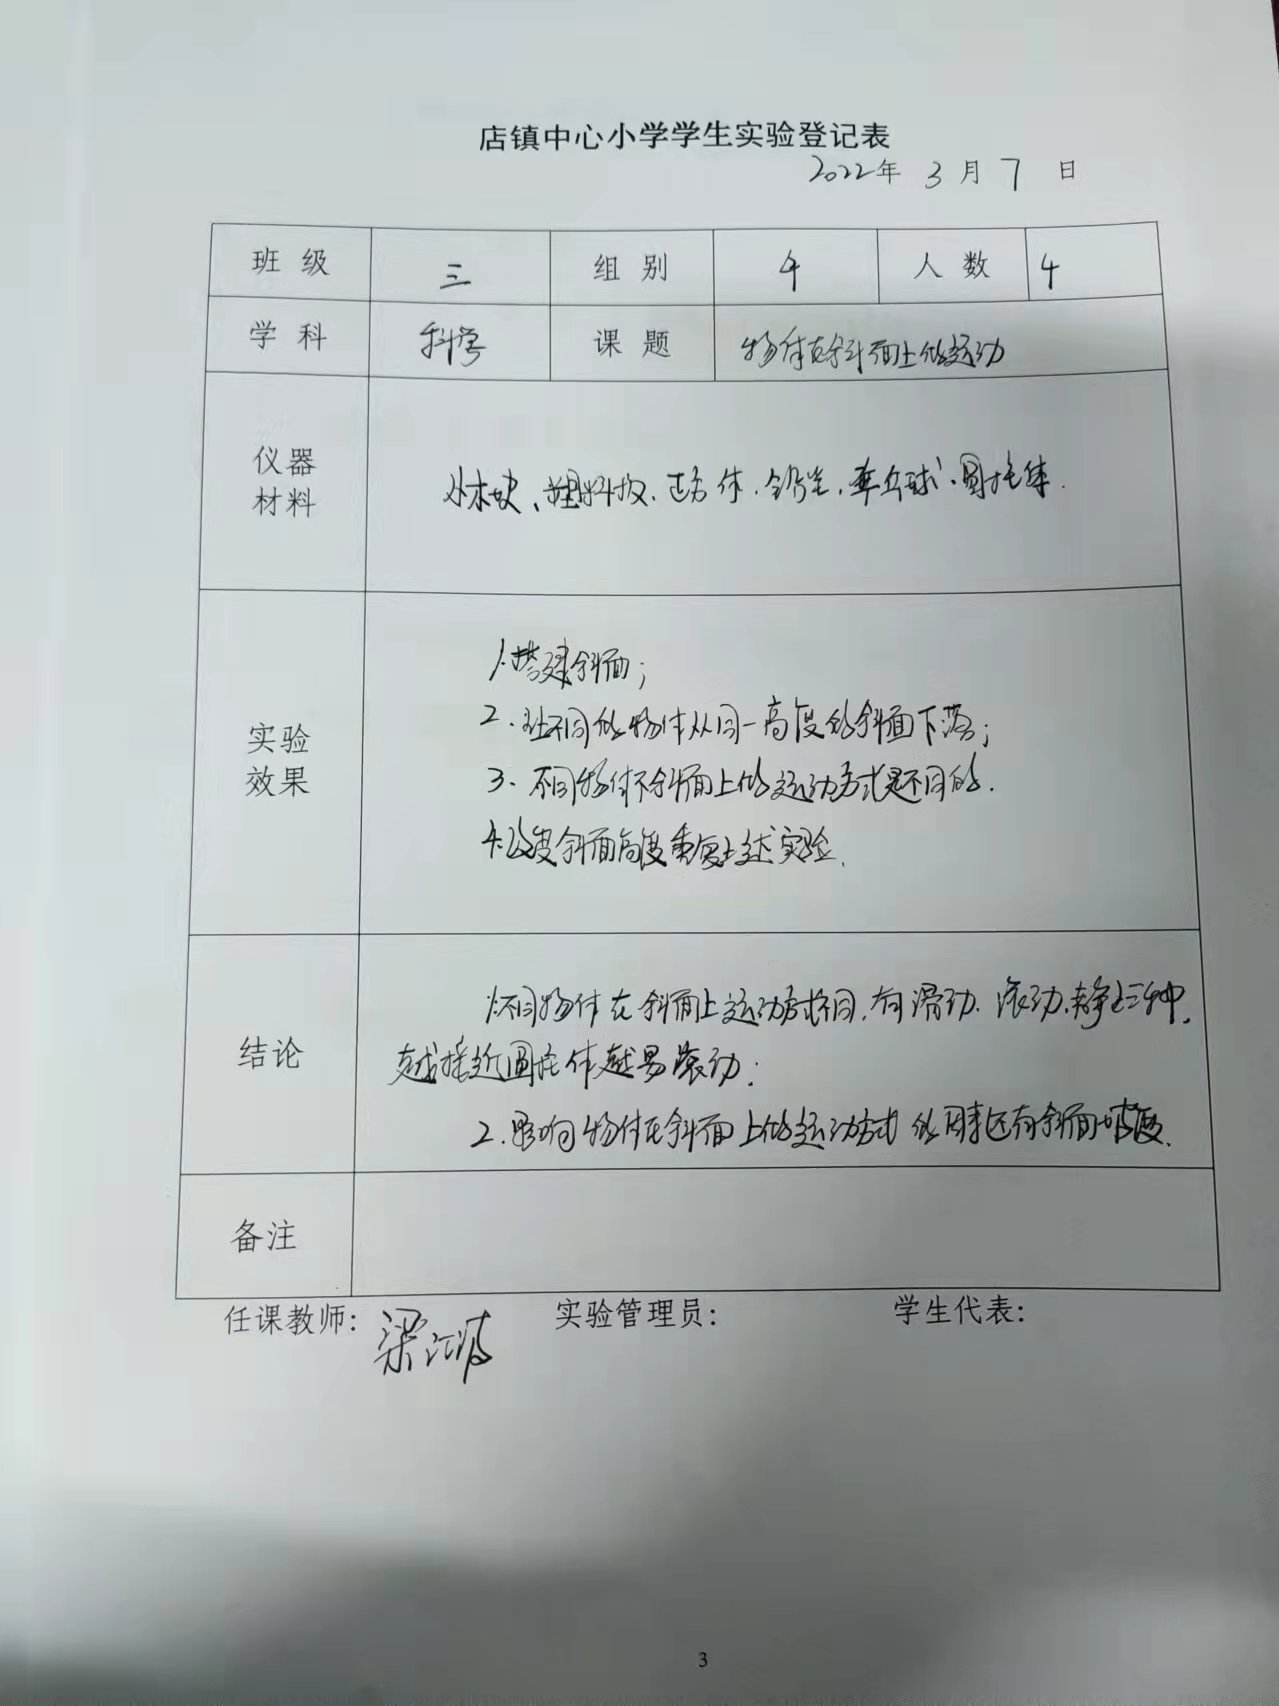 店镇中心小学学生实验登记表
2022年 3 月 7 日
班级 三 组别 4 人数 4
学科 科学 课题 物体在斜面上的运动
仪器
材料
小木块、塑料板、正方体、铅笔、乒乓球、圆柱体.
实验
效果
1.搭建斜面;
2.让不同的物体从同一高度的斜面下落;
3.不同物体在斜面上的运动方式是不同的.
4.改变斜面高度重复上述实验.
结论
1.不同物体在斜面上运动方式不同,有滑动、滚动、静止三种,
越接近圆柱体越易滚动;
2.影响物体在斜面上的运动方式的因素还有斜面坡度.
备注
任课教师: 梁江波 实验管理员: 学生代表:
3